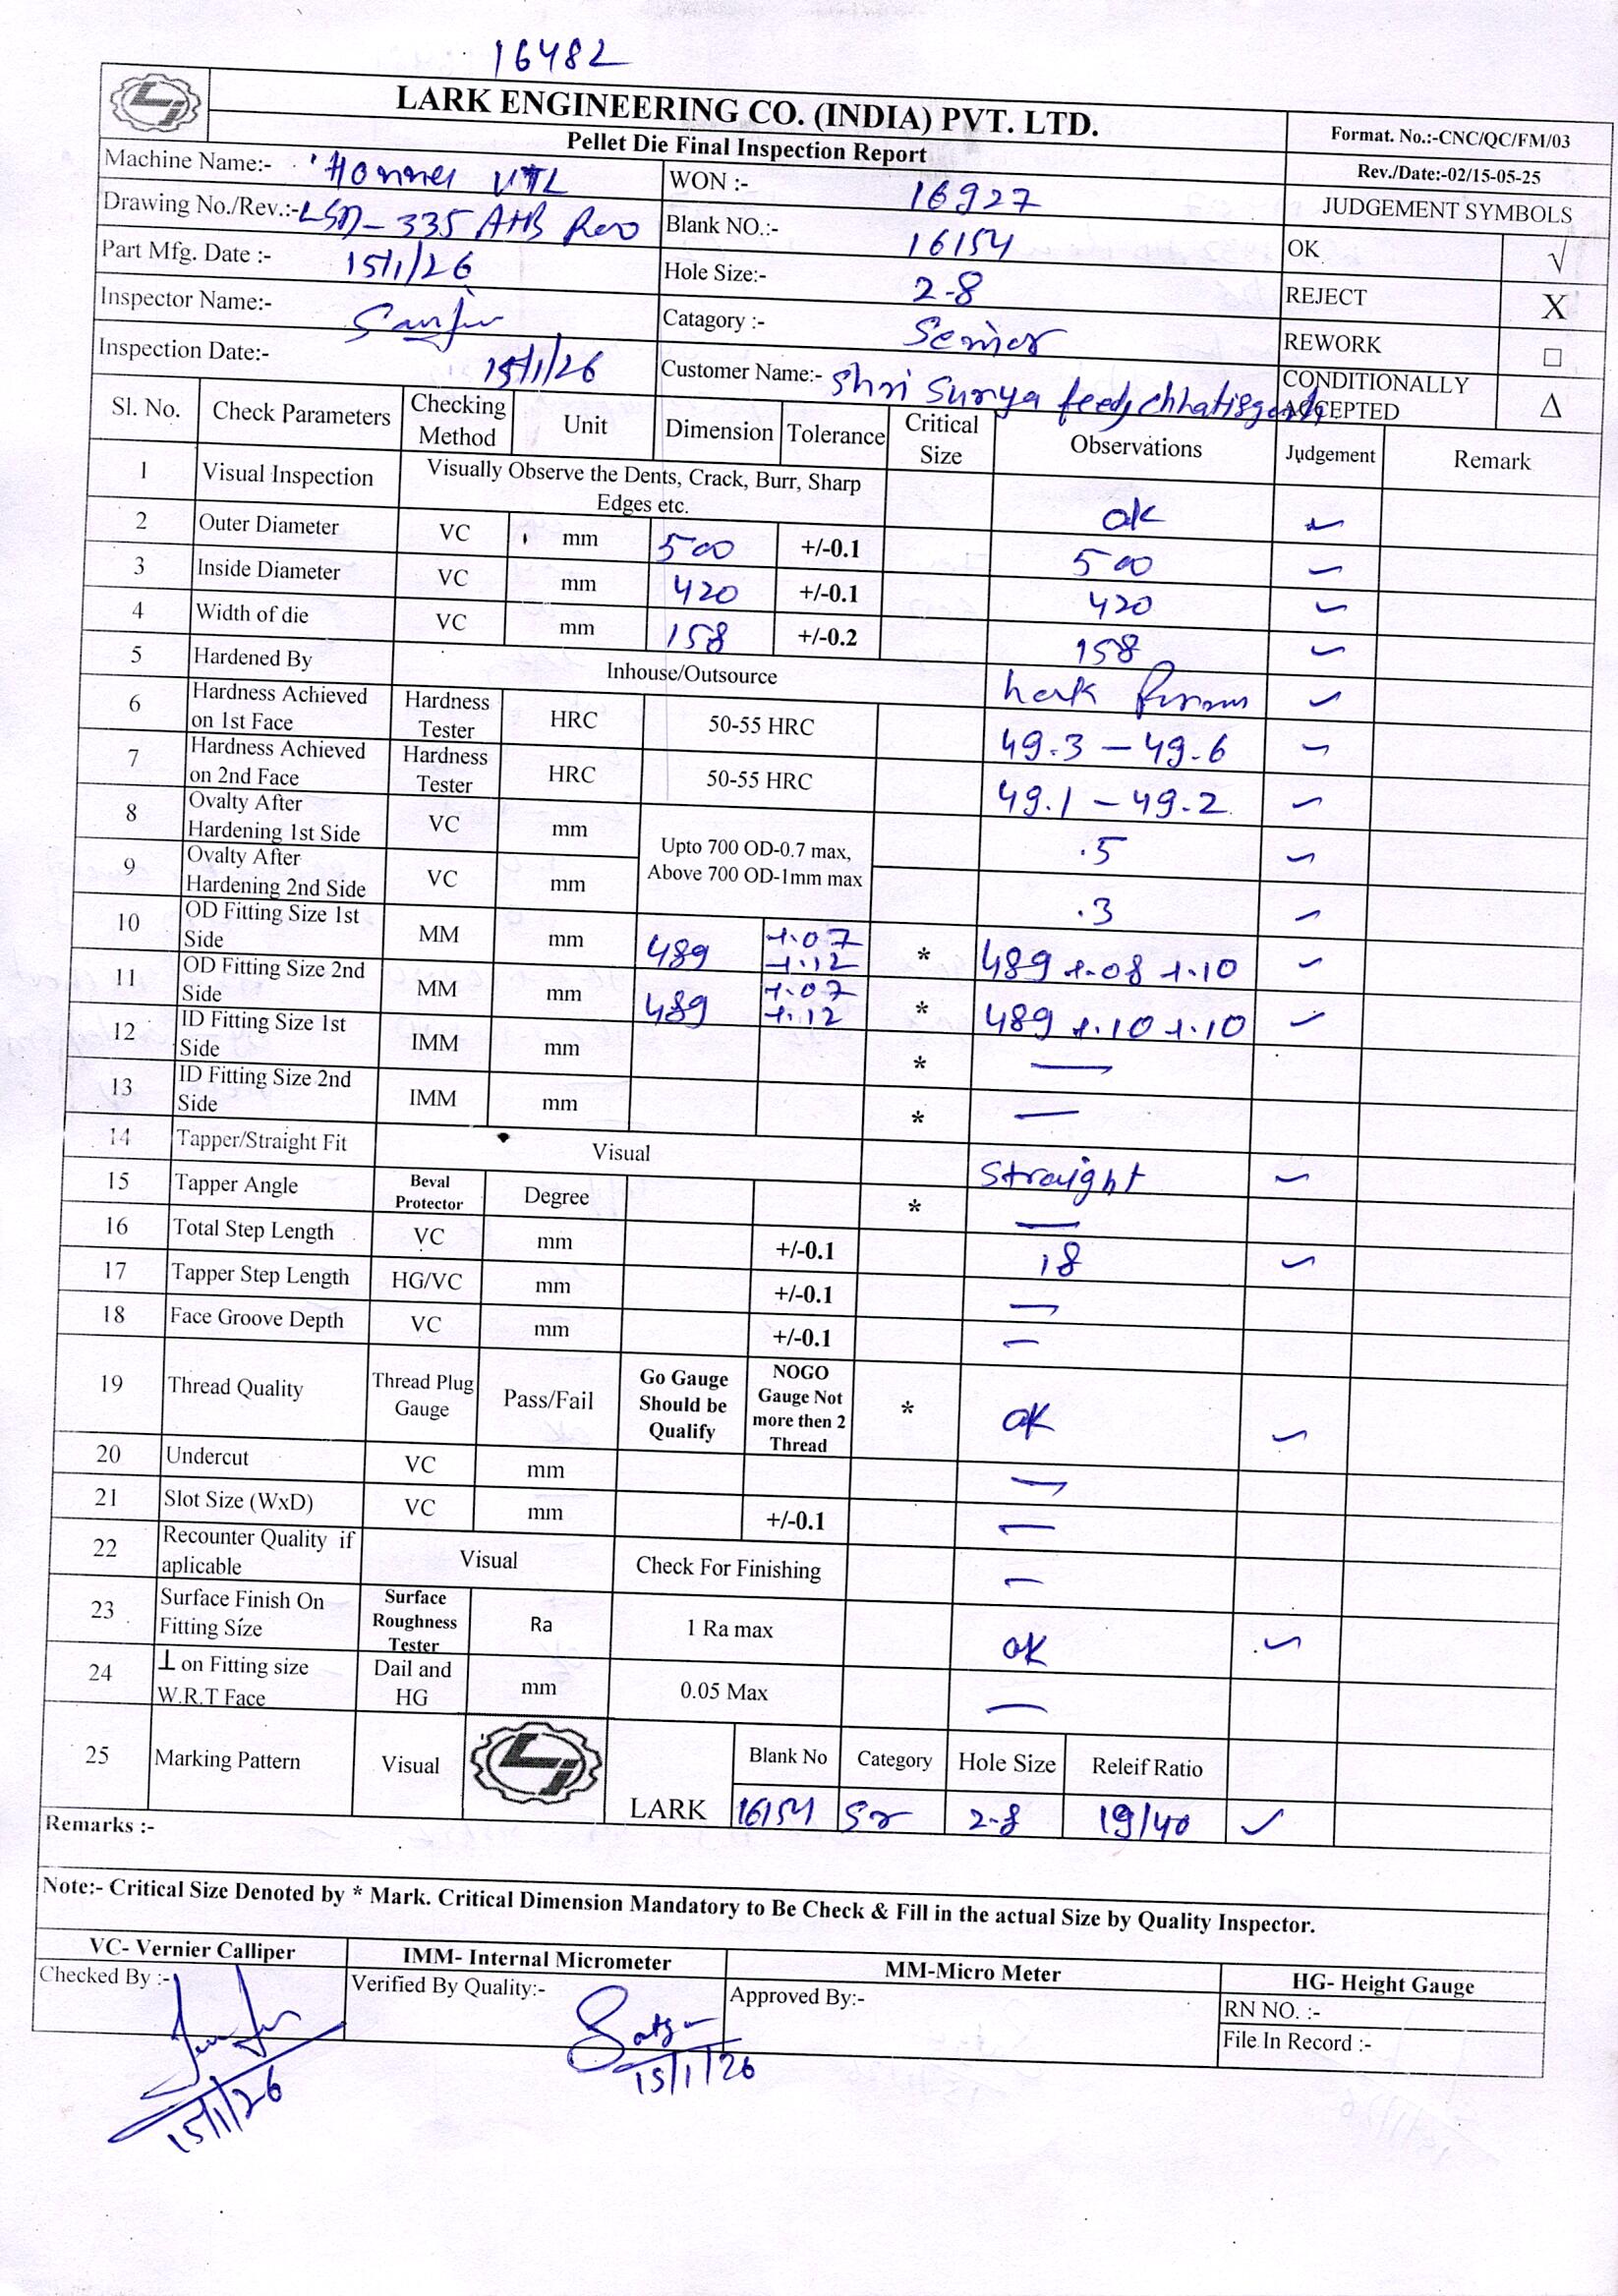 16482
LARK ENGINEERING CO. (INDIA) PVT. LTD.
Pellet Die Final Inspection Report
Format. No.:-CNC/QC/FM/03
Rev./Date:-02/15-05-25
Machine Name:- VTL
WON :- 16927
JUDGEMENT SYMBOLS
Drawing No./Rev.:- -335
Blank NO.:- 16154
OK √
Part Mfg. Date :- 15/1/26
Hole Size:- 2-8
REJECT X
Inspector Name:-
Catagory :- Senior
REWORK □
Inspection Date:- 15/1/26
Customer Name:- Shri Surya feeds chhatisgarh
CONDITIONALLY ACCEPTED Δ
Sl. No. Check Parameters Checking Method Unit Dimension Tolerance Critical Size Observations Judgement Remark
1 Visual Inspection Visually Observe the Dents, Crack, Burr, Sharp Edges etc. ok ✓
2 Outer Diameter VC mm 500 +/-0.1 500 ✓
3 Inside Diameter VC mm 420 +/-0.1 420 ✓
4 Width of die VC mm 158 +/-0.2 158 ✓
5 Hardened By Inhouse/Outsource ✓
6 Hardness Achieved on 1st Face Hardness Tester HRC 50-55 HRC 49.3 – 49.6 ✓
7 Hardness Achieved on 2nd Face Hardness Tester HRC 50-55 HRC 49.1 – 49.2 ✓
8 Ovalty After Hardening 1st Side VC mm Upto 700 OD-0.7 max, Above 700 OD-1mm max .5 ✓
9 Ovalty After Hardening 2nd Side VC mm .3 ✓
10 OD Fitting Size 1st Side MM mm 489 +.07 +.12 * 489 +.08 +.10 ✓
11 OD Fitting Size 2nd Side MM mm 489 +.07 +.12 * 489 +.10 +.10 ✓
12 ID Fitting Size 1st Side IMM mm * —
13 ID Fitting Size 2nd Side IMM mm * —
14 Tapper/Straight Fit Visual Straight ✓
15 Tapper Angle Beval Protector Degree * —
16 Total Step Length VC mm +/-0.1 18 ✓
17 Tapper Step Length HG/VC mm +/-0.1 —
18 Face Groove Depth VC mm +/-0.1 —
19 Thread Quality Thread Plug Gauge Pass/Fail Go Gauge Should be Qualify NOGO Gauge Not more then 2 Thread * ok ✓
20 Undercut VC mm —
21 Slot Size (WxD) VC mm +/-0.1 —
22 Recounter Quality if aplicable Visual Check For Finishing —
23 Surface Finish On Fitting Size Surface Roughness Tester Ra 1 Ra max ok ✓
24 ⊥ on Fitting size W.R.T Face Dail and HG mm 0.05 Max —
25 Marking Pattern Visual LARK Blank No Category Hole Size Releif Ratio
16154 Sr 2-8 19/40 ✓
Remarks :-
Note:- Critical Size Denoted by * Mark. Critical Dimension Mandatory to Be Check & Fill in the actual Size by Quality Inspector.
VC- Vernier Calliper IMM- Internal Micrometer MM-Micro Meter HG- Height Gauge
Checked By :- Verified By Quality:- Approved By:- RN NO. :-
File In Record :-
15/1/26 15/1/26